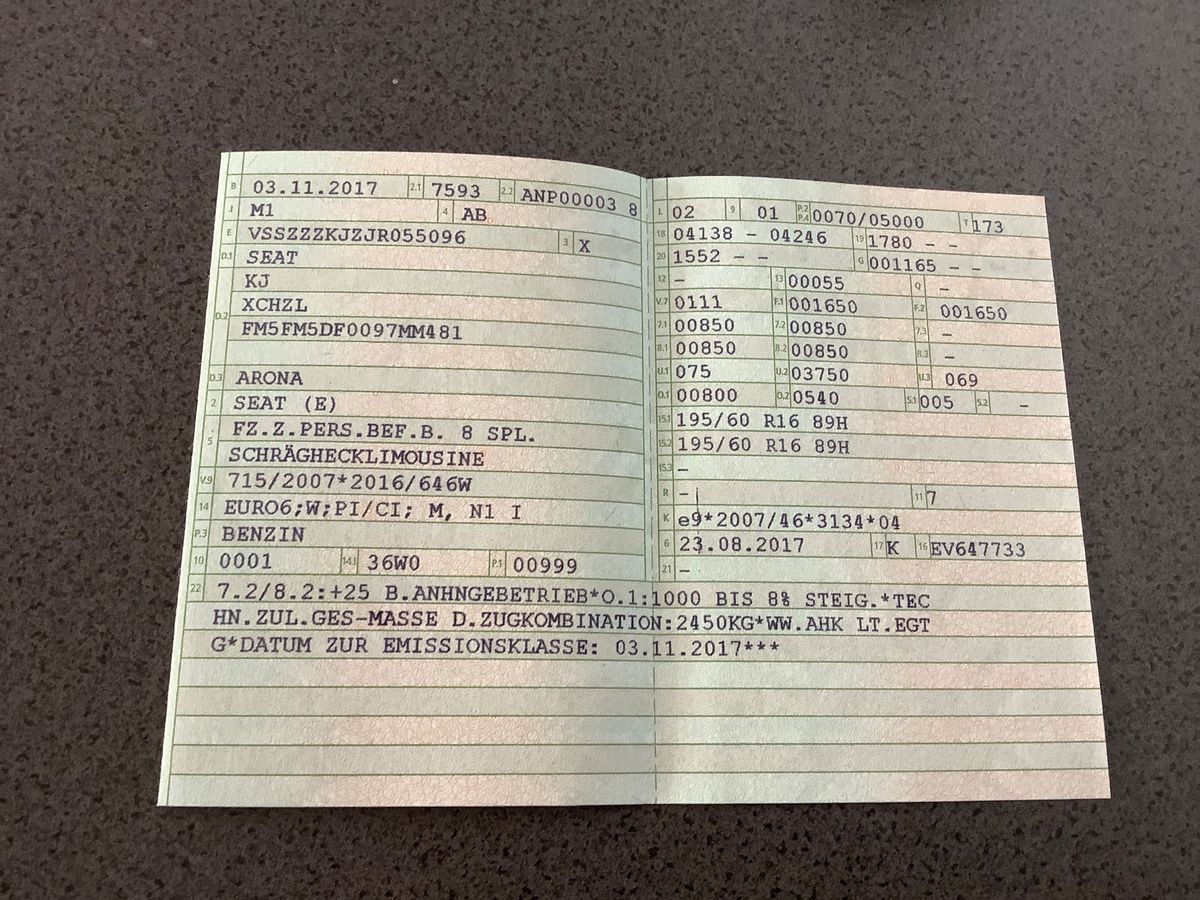 B 03.11.2017 2.1 7593 2.2 ANP00003 8
J M1 4 AB
E VSSZZZKJZJR055096 3 X
D.1 SEAT
KJ
D.2 XCHZL
FM5FM5DF0097MM481
D.3 ARONA
2 SEAT (E)
5 FZ.Z.PERS.BEF.B. 8 SPL.
SCHRÄGHECKLIMOUSINE
V.9 715/2007*2016/646W
14 EURO6;W;PI/CI; M, N1 I
P.3 BENZIN
10 0001 14.1 36W0 P.1 00999
L 02 9 01 P.2 P.4 0070/05000 T 173
18 04138 - 04246 19 1780 - -
20 1552 - - G 001165 - -
12 - 13 00055 Q -
V.7 0111 F.1 001650 F.2 001650
7.1 00850 7.2 00850 7.3 -
8.1 00850 8.2 00850 8.3 -
U.1 075 U.2 03750 U.3 069
O.1 00800 O.2 0540 S.1 005 S.2 -
15.1 195/60 R16 89H
15.2 195/60 R16 89H
15.3 -
R - 11 7
K e9*2007/46*3134*04
6 23.08.2017 17 K 16 EV647733
21 -
22 7.2/8.2:+25 B.ANHNGEBETRIEB*O.1:1000 BIS 8% STEIG.*TEC
HN.ZUL.GES-MASSE D.ZUGKOMBINATION:2450KG*WW.AHK LT.EGT
G*DATUM ZUR EMISSIONSKLASSE: 03.11.2017***